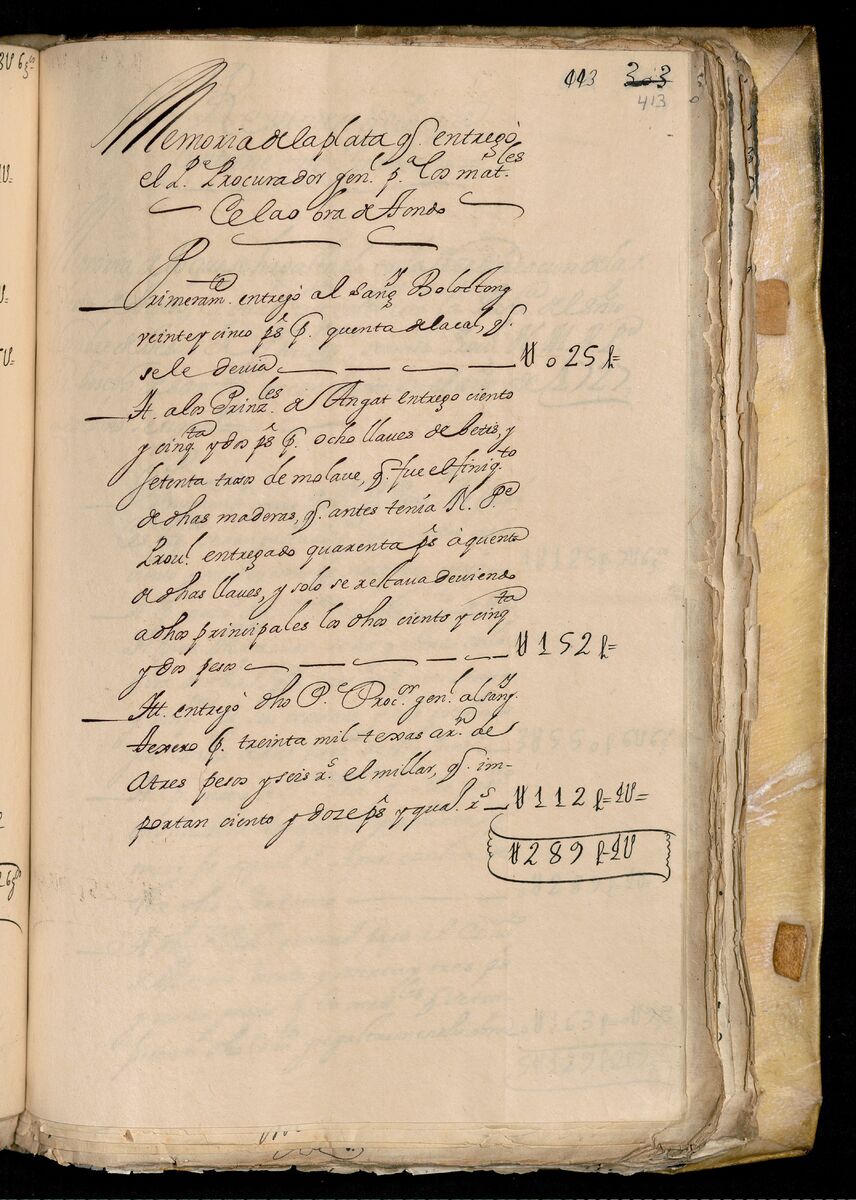 113 303
413
Memoria de la plata q̃. entregò
el P.e Procurador gen.l p.a los mat.les
De las obra de Hondo
Primeram.te entregò al sang.y Boloctong
veinte y cinco p̃s p̃. quenta de la cal, q̃.
se le devia U 025 p=
It. a los Prinz.les de Angat entregò ciento
y cinq.ta y dos p̃s p̃. ocho llaves de betis, y
setenta trosos de molave, q̃. fue el finiq.to
de dhas maderas, q̃. antes tenía N. P.e
Prov.l entregado quarenta p̃s à quenta
de dhas llaves, y solo se restava deviendo
a dhos principales los dhos ciento y cinq.ta
y dos pesos U 152 p=
It. entregò dho P.e Proc.or gen.l al sang.y
texero p̃. treinta mil texas de
a tres pesos y seis r.s el millar, q̃. im-
portan ciento y doze p̃s y quat. r.s U 112 p=IU=
U 289 p=IU